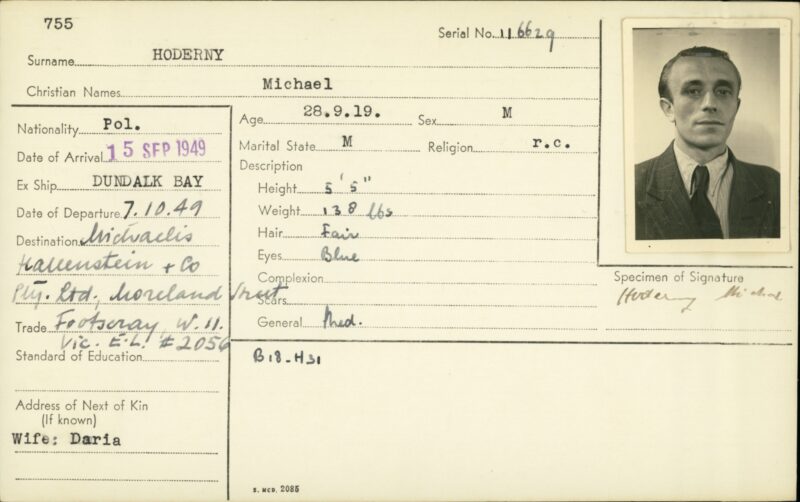 755
Serial No. 116629
Surname HODERNY
Christian Names Michael
Nationality Pol.
Date of Arrival 15 SEP 1949
Ex Ship DUNDALK BAY
Date of Departure 7.10.49
Destination Michaelis
Hallenstein + Co
Pty. Ltd., Moreland Street
Trade Footscray W.11.
Vic. E.L. # 2056
Standard of Education
Address of Next of Kin
(If known)
Wife: Daria
Age 28.9.19. Sex M
Marital State M Religion r.c.
Description
Height 5'5"
Weight 138 lbs
Hair Fair
Eyes Blue
Complexion
Scars
General Med.
B18-H31
S. MCD. 2085
Specimen of Signature
Hoderny Michael